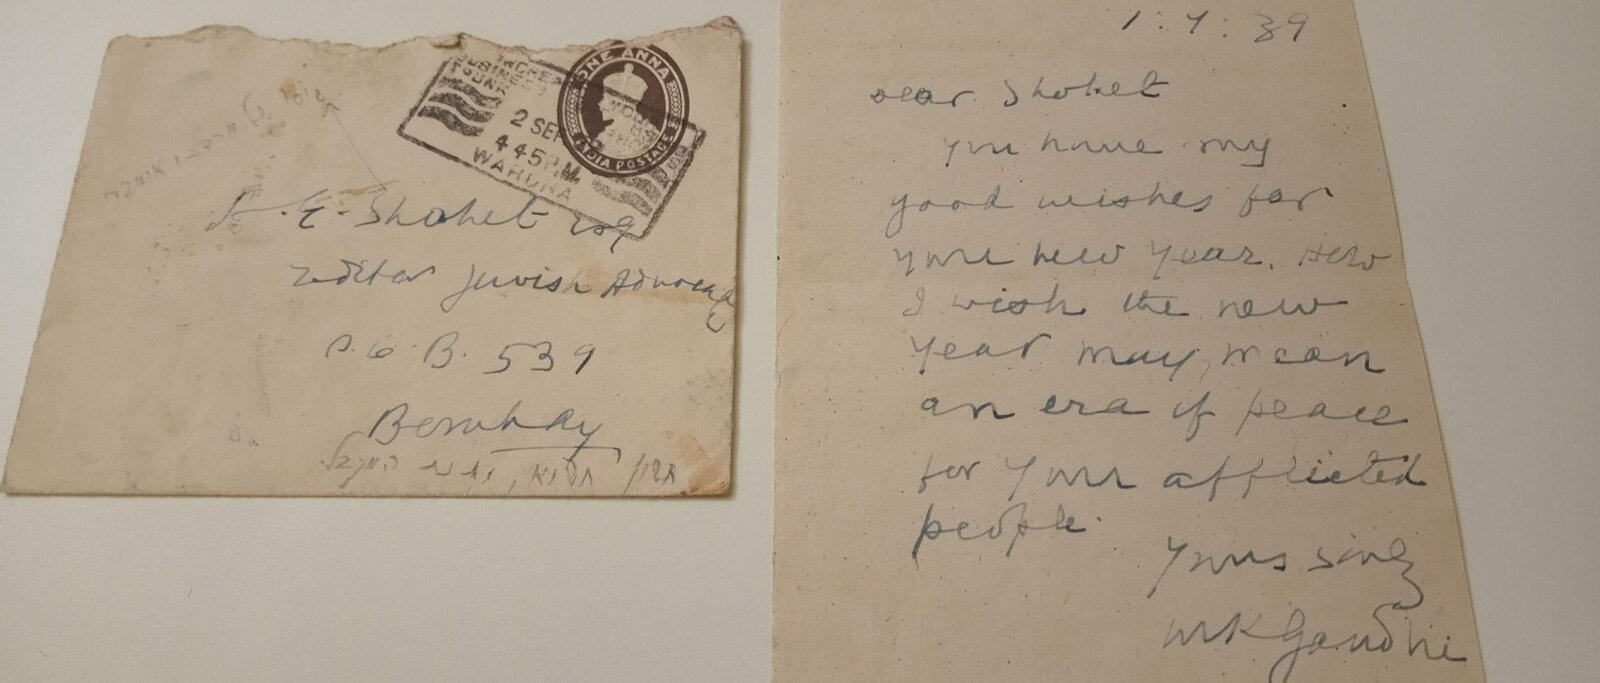 INCREA
BUSINESS
TRUNK
2 SEP
4 45 P.M.
WARDHA
ONE ANNA
INDIA POSTAGE
E. Shohet Esq
Editor Jewish Advocate
P. O. B. 539
Bombay
1 : 9 : 39
Dear Shohet
You have my
good wishes for
your new year. How
I wish the new
year may mean
an era of peace
for your afflicted
people.
Yours sinly
MKGandhi